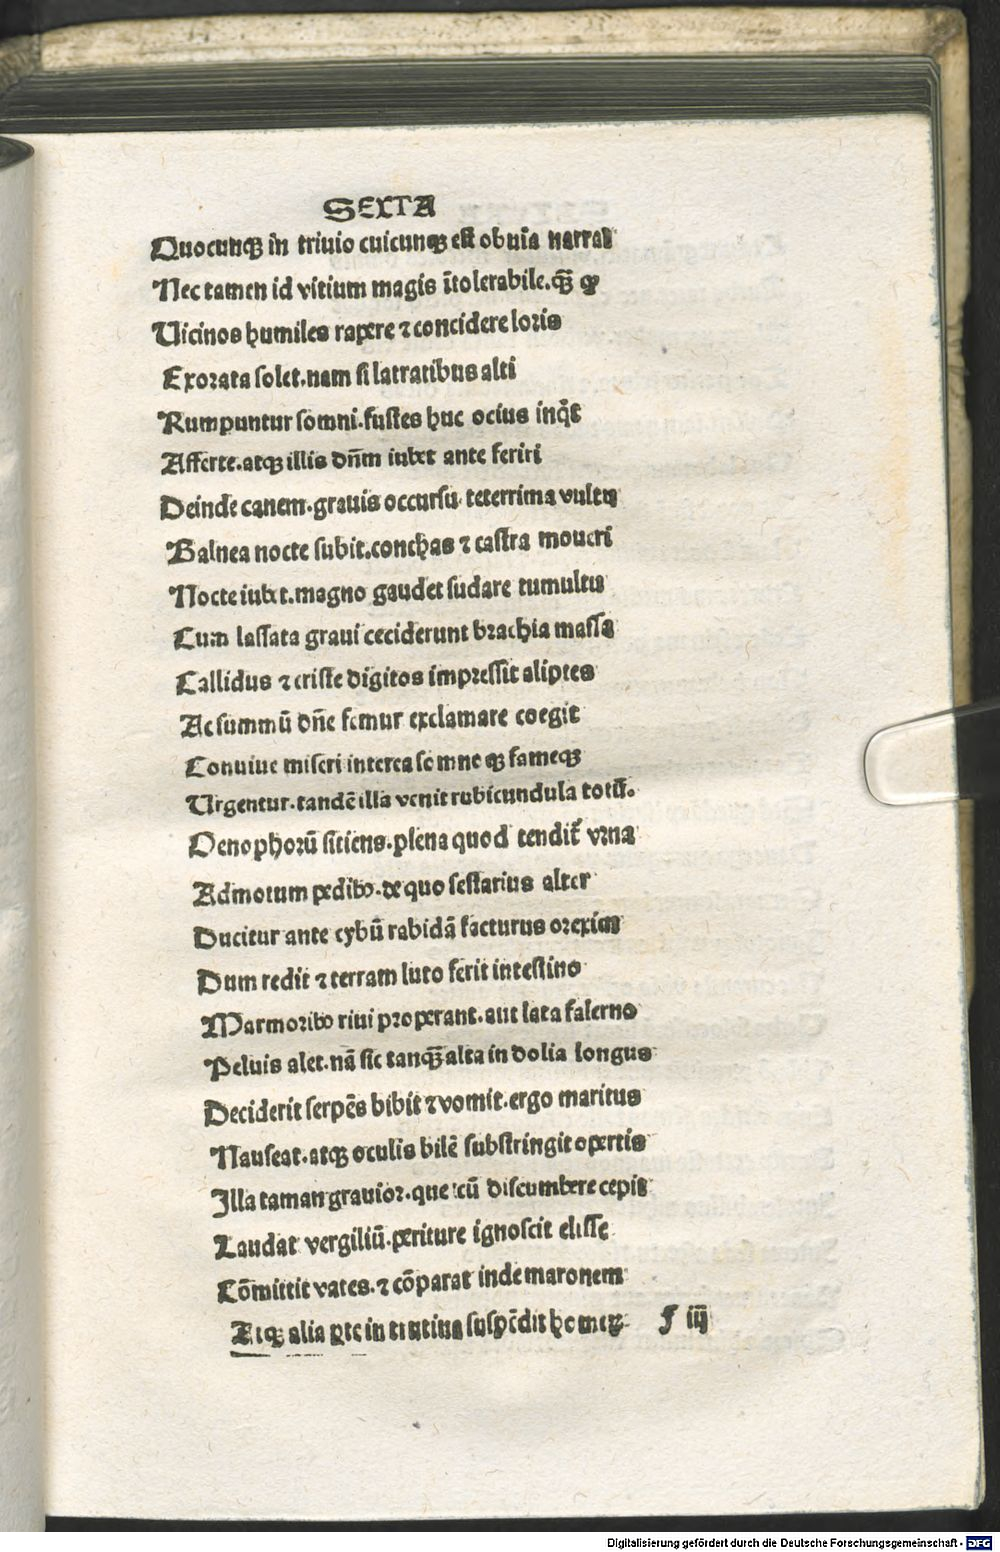 SEXTA
Quocunqꝫ in triuio cuicunqꝫ est obuia narrat
Nec tamen id vitium magis ĩtolerabile. qꝫ̃ ꝙ
Uicinos humiles rapere ⁊ concidere loris
Exorata solet. nam si latratibus alti
Rumpuntur somni. fustes huc ocius inq̃t
Afferte. atqꝫ illis dñm iubet ante feriri
Deinde canem. grauis occursu teterrima vultu
Balnea nocte subit. conchas ⁊ castra moueri
Nocte iubet. magno gaudet sudare tumultu
Cum lassata graui ceciderunt brachia massa
Callidus ⁊ criste digitos impressit aliptes
Ac summũ dñe femur exclamare coegit
Conuiue miseri interea somne qꝫ fameqꝫ
Urgentur. tandẽ illa venit rubicundula totũ.
Oenophorũ sitiens. plena quod tendit̃ vrna
Admotum pedibꝰ. de quo sestarius alter
Ducitur ante cybũ rabidã facturus orexim
Dum redit ⁊ terram luto ferit intestino
Marmoribꝰ riui properant. aut lata falerno
Peluis alet. nã sic tanqꝫ̃ alta in dolia longus
Deciderit serpẽs bibit ⁊ vomit. ergo maritus
Nauseat. atqꝫ oculis bilẽ substringit opertis
Illa taman grauior. que cũ discumbere cepit
Laudat vergiliũ. periture ignoscit elisse
Cõmittit vates. ⁊ cõparat inde maronem
Atqꝫ alia ꝑte in trutina suspẽdit homeꝝ f iij
Digitalisierung gefördert durch die Deutsche Forschungsgemeinschaft - DFG